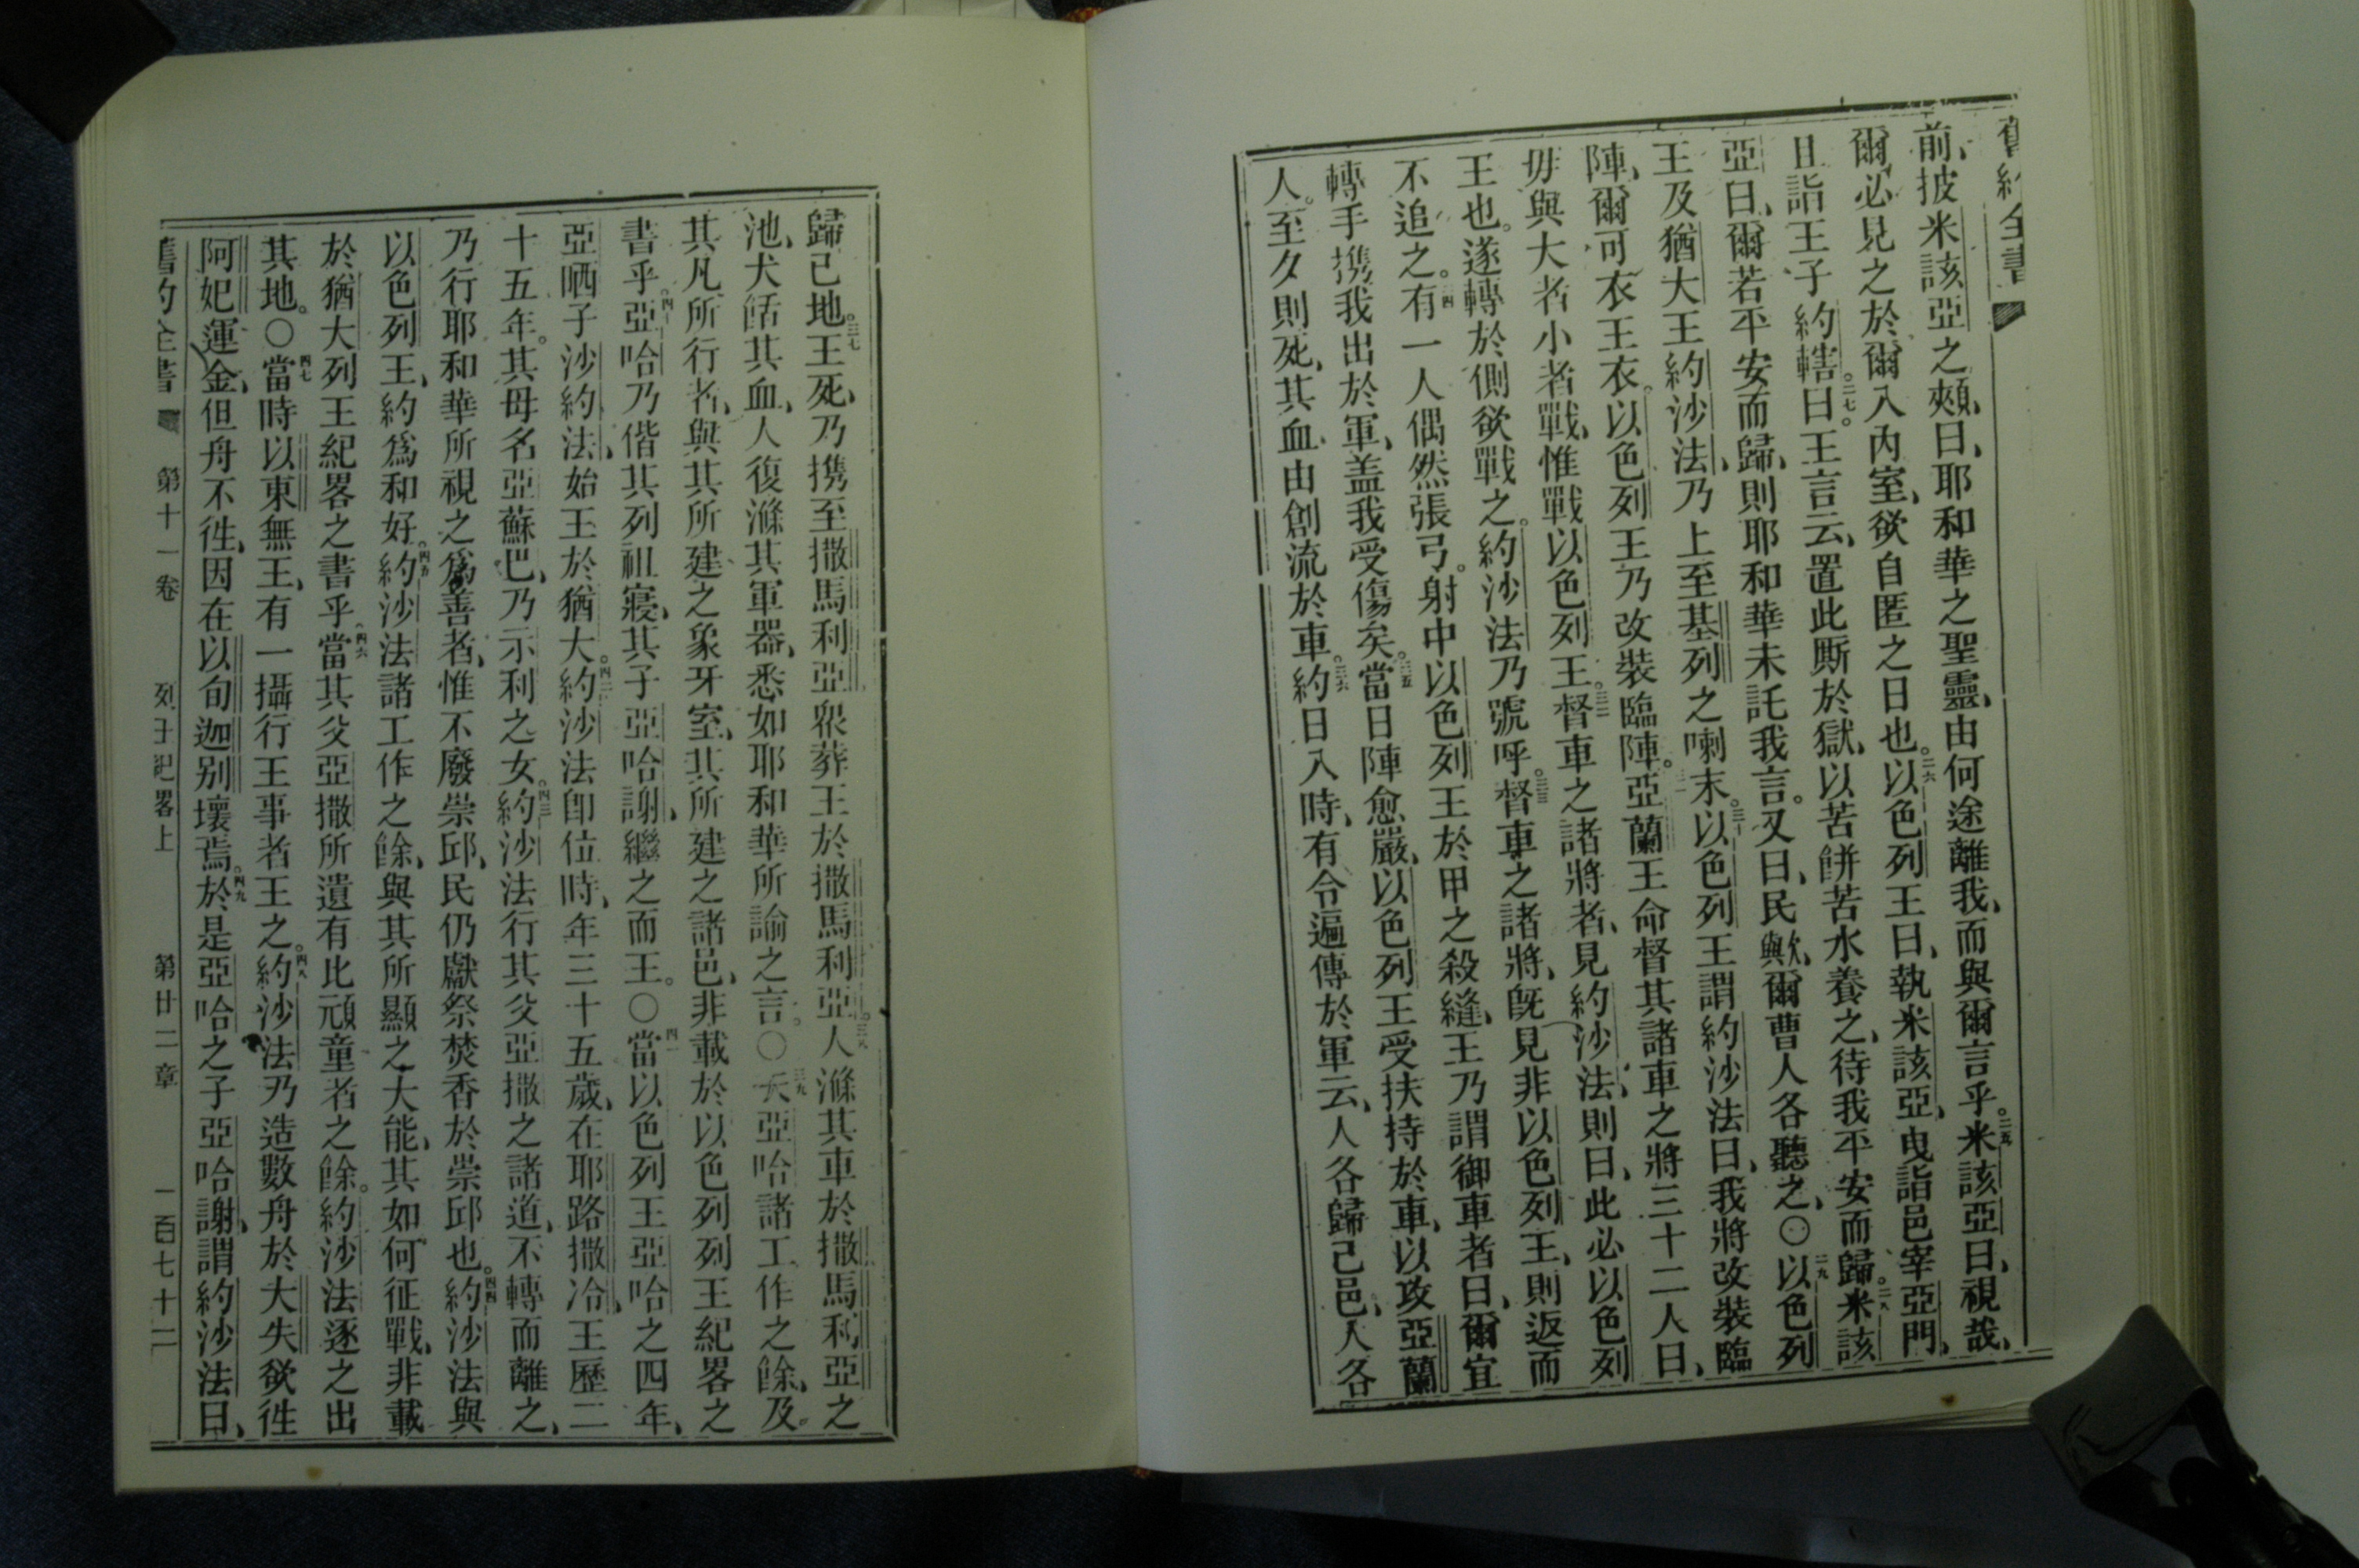 舊約全書
前、披米該亞之頰、曰、耶和華之聖靈、由何途離我、而與爾言乎。二五米該亞曰、視哉、
爾必見之於爾入內室、欲自匿之日也。二六以色列王曰、執米該亞、曳詣邑宰亞門、
且詣王子約轄。二七曰。王言云、置此厮於獄、以苦餠苦水養之、待我平安而歸。二八米該
亞曰、爾若平安而歸、則耶和華未託我言。又曰、民歟、爾曹人各聽之、〇二九以色列
王及猶大王約沙法、乃上至基列之喇末。三十以色列王謂約沙法曰、我將改裝臨
陣、爾可衣王衣。以色列王乃改裝臨陣。亞蘭王命督其諸車之將三十二人曰、
毋與大者小者戰、惟戰以色列王。三二督車之諸將者、見約沙法、則曰、此必以色列
王也。遂轉於側欲戰之。約沙法乃號呼。三三督車之諸將、旣見非以色列王、則返而
不追之。三四有一人偶然張弓。射中以色列王於甲之殺縫、王乃謂御車者曰、爾宜
轉手携我出於軍、盖我受傷矣。三五當日陣愈嚴、以色列王受扶持於車、以攻亞蘭
人。至夕則死、其血由創流於車。三六約日入時、有令遍傳於軍云、人各歸己邑、人各
歸己地。三七王死、乃携至撒馬利亞、衆葬王於撒馬利亞。三八人滌其車於撒馬利亞之
池、犬餂其血、人復滌其軍器、悉如耶和華所諭之言。〇三九夫亞哈諸工作之餘、及
其凡所行者、與其所建之象牙室、其所建之諸邑、非載於以色列列王紀畧之
書乎。四十亞哈乃偕其列祖寢、其子亞哈謝、繼之而王。〇四一當以色列王亞哈之四年、
亞晒子沙約法、始王於猶大。四二約沙法卽位時、年三十五歲、在耶路撒冷、王歷二
十五年。其母名亞蘇巴、乃示利之女。四三約沙法行其父亞撒之諸道、不轉而離之、
乃行耶和華所視之爲善者、惟不廢崇邱、民仍獻祭焚香於崇邱也。四四約沙法與
以色列王、約爲和好。四五約沙法諸工作之餘、與其所顯之大能、其如何征戰、非載
於猶大列王紀畧之書乎。四六當其父亞撒所遺有比頑童者之餘。約沙法逐之出
其地。〇四七當時以東無王、有一攝行王事者王之。四八約沙法乃造數舟於大失欲徃
阿妃運金、但舟不徃、因在以旬迦别壞焉。四九於是亞哈之子亞哈謝、謂約沙法曰、
舊約全書 第十一卷 列王紀畧上 第廿二章 一百七十二